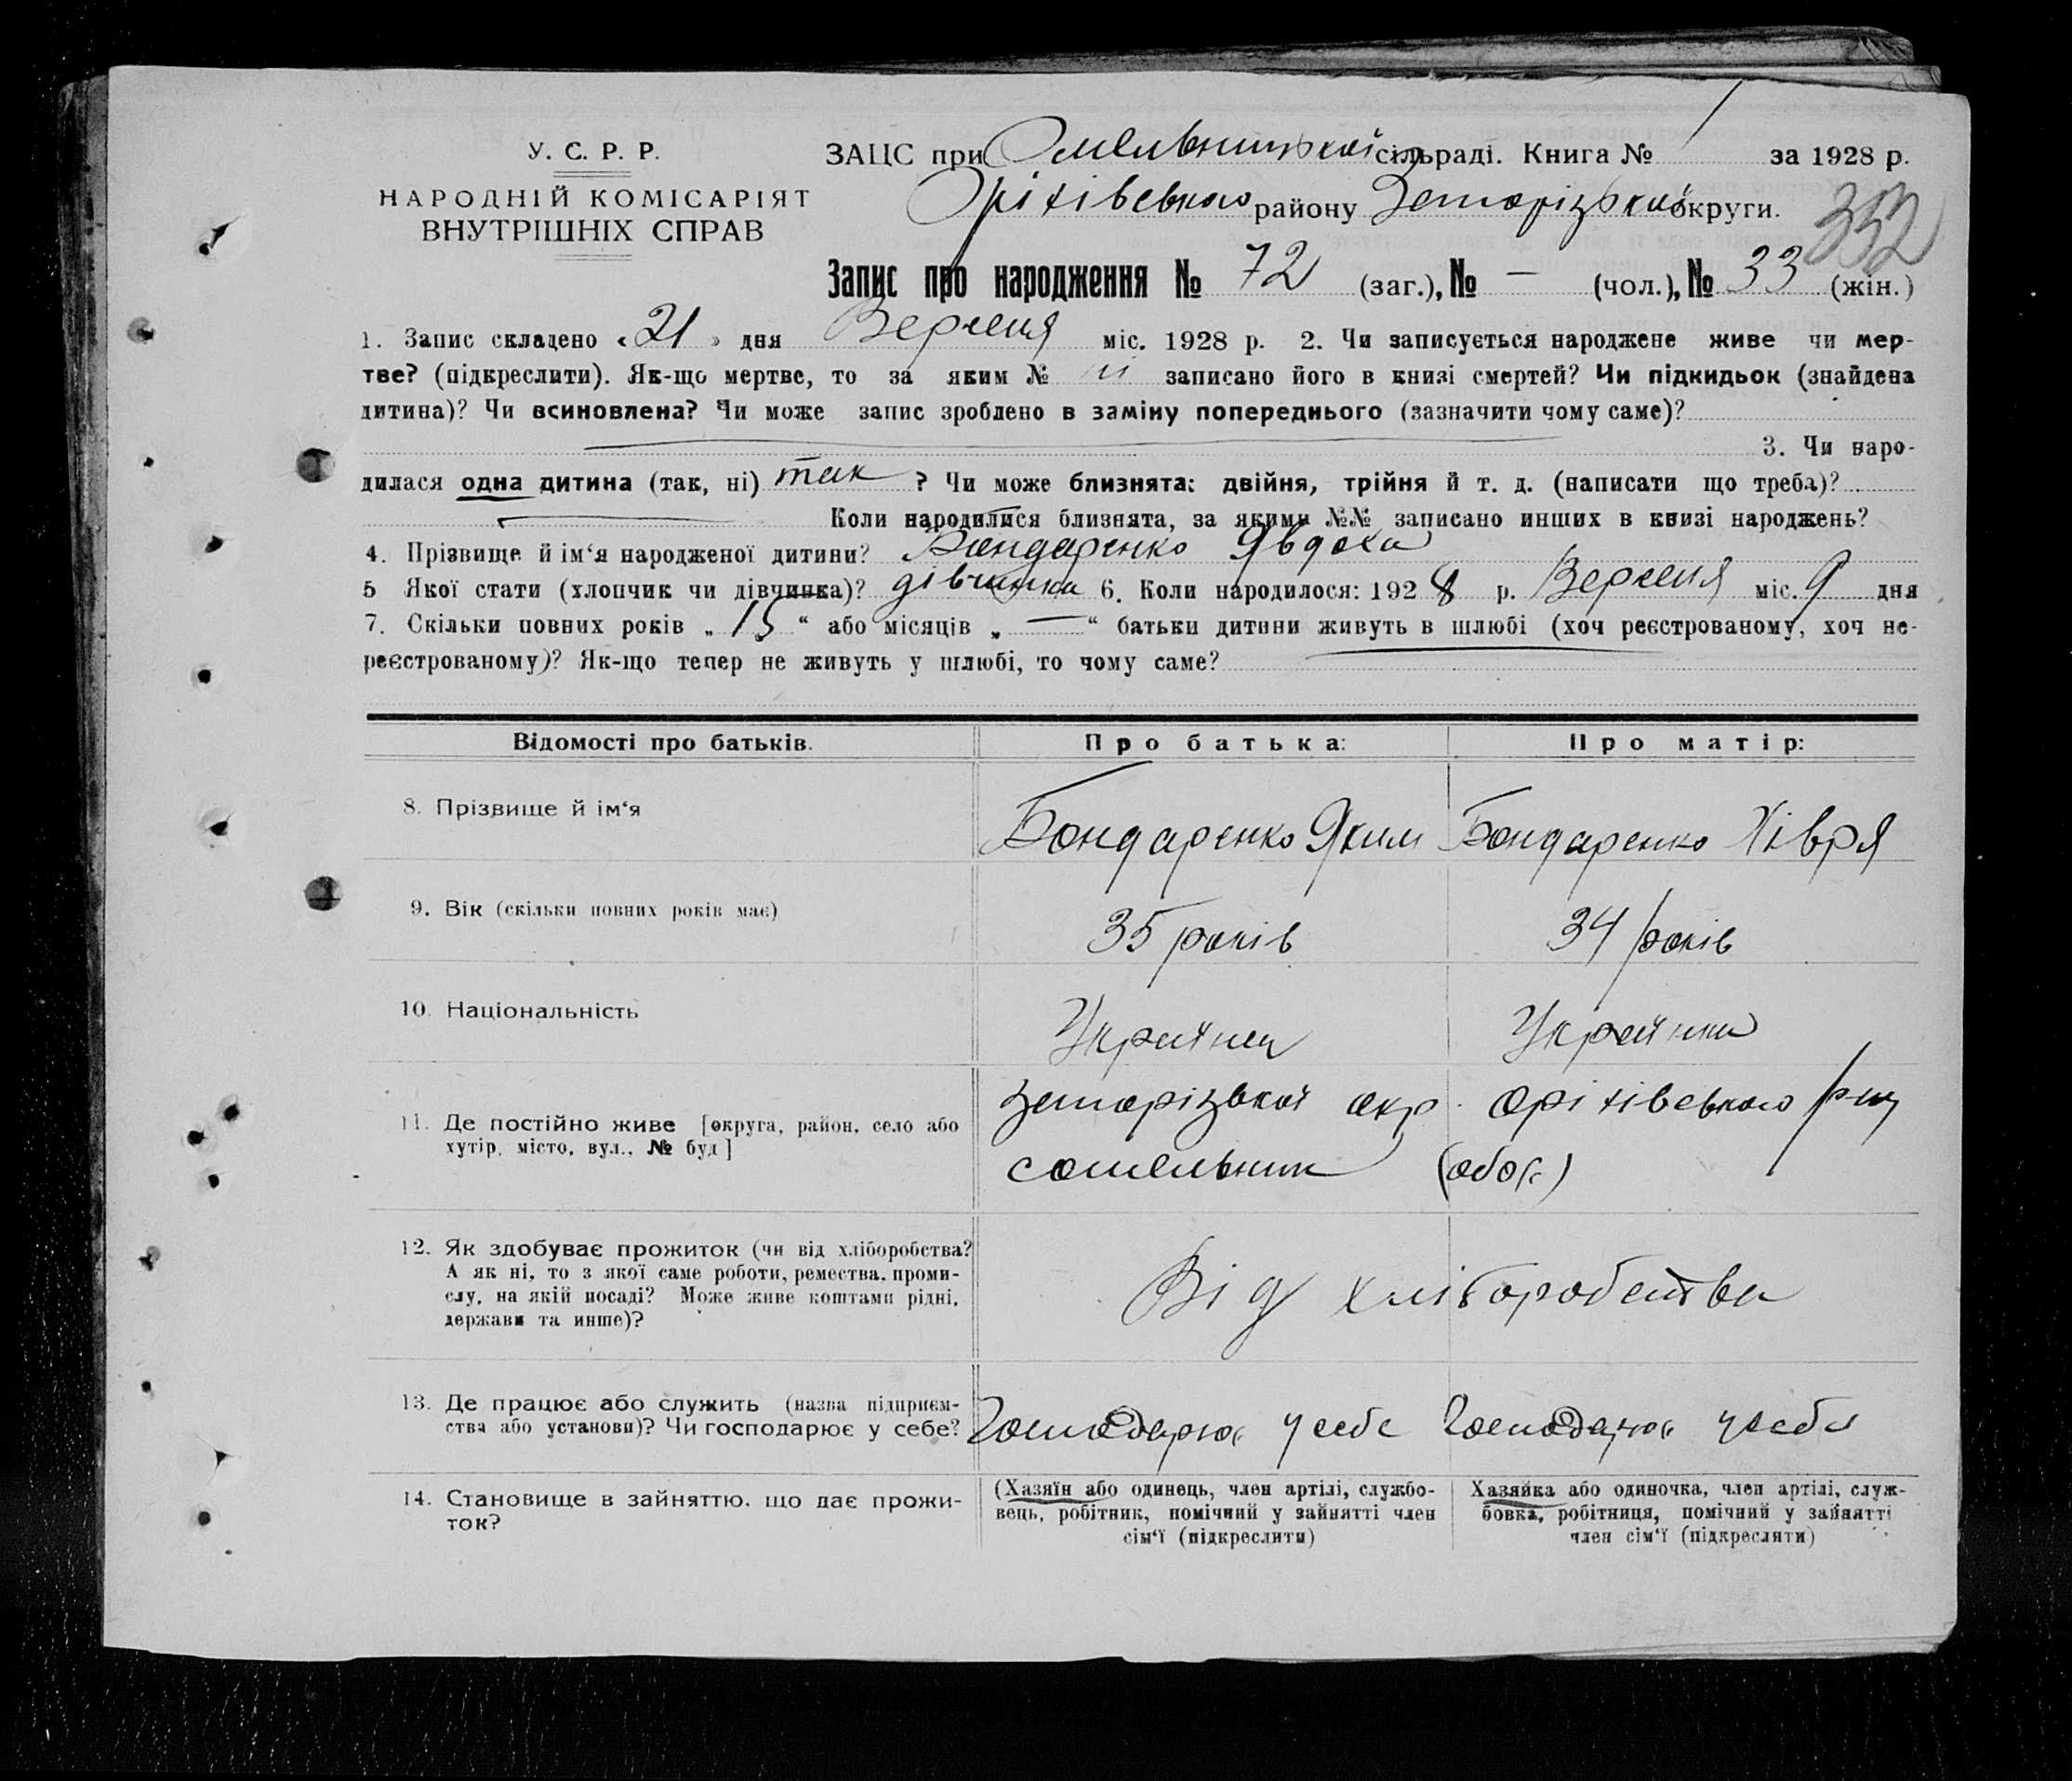 У. С. Р. Р.
НАРОДНІЙ КОМІСАРІЯТ
ВНУТРІШНІХ СПРАВ
ЗАЦС при Омельницькой сільраді. Книга № 1 за 1928 р.
Оріхівського району Запорізької округи.
352
Запис про народження № 72 (заг.), № — (чол.), № 33 (жін.)
1. Запис складено «21» дня Вересня міс. 1928 р. 2. Чи записується народжене живе чи мер-
тве? (підкреслити). Як-що мертве, то за яким № ні записано його в книзі смертей? Чи підкидьок (знайдена
дитина)? Чи всиновлена? Чи може запис зроблено в заміну попереднього (зазначити чому саме)?
3. Чи наро-
дилася одна дитина (так, ні) так ? Чи може близнята: двійня, трійня й т. д. (написати що треба)?
Коли народилися близнята, за якими №№ записано инших в книзі народжень?
4. Прізвище й ім‘я народженої дитини? Бондаренко Явдоха
5 Якої стати (хлопчик чи дівчинка)? дівчинка 6. Коли народилося: 1928 р. Вересня міс. 9 дня
7. Скільки повних років „15“ або місяців „—“ батьки дитини живуть в шлюбі (хоч реєстрованому, хоч не-
реєстрованому)? Як-що тепер не живуть у шлюбі, то чому саме?
Відомості про батьків. Про батька: Про матір:
8. Прізвище й ім‘я Бондаренко Яким Бондаренко Хівря
9. Вік (скільки повних років має) 35 років 34 років
10. Національність Українец Українка
11. Де постійно живе [округа, район, село або
хутір, місто, вул., № буд]
Запорізької окр. Оріхівського р-ну
с Омельник (обоє)
12. Як здобуває прожиток (чи від хліборобства?
А як ні, то з якої саме роботи, ремества, проми-
слу, на якій посаді? Може живе коштами рідні,
держави та инше)?
Від хліборобства
13. Де працює або служить (назва підприєм-
ства або установи)? Чи господарює у себе?
Господарює у себе Господарює у себе
14. Становище в зайняттю, що дає прожи-
ток?
(Хазяїн або одинець, член артілі, службо-
вець, робітник, помічний у зайнятті член
сім‘ї (підкреслити)
Хазяйка або одиночка, член артілі, служ-
бовка, робітниця, помічний у зайнятті
член сім‘ї (підкреслити)